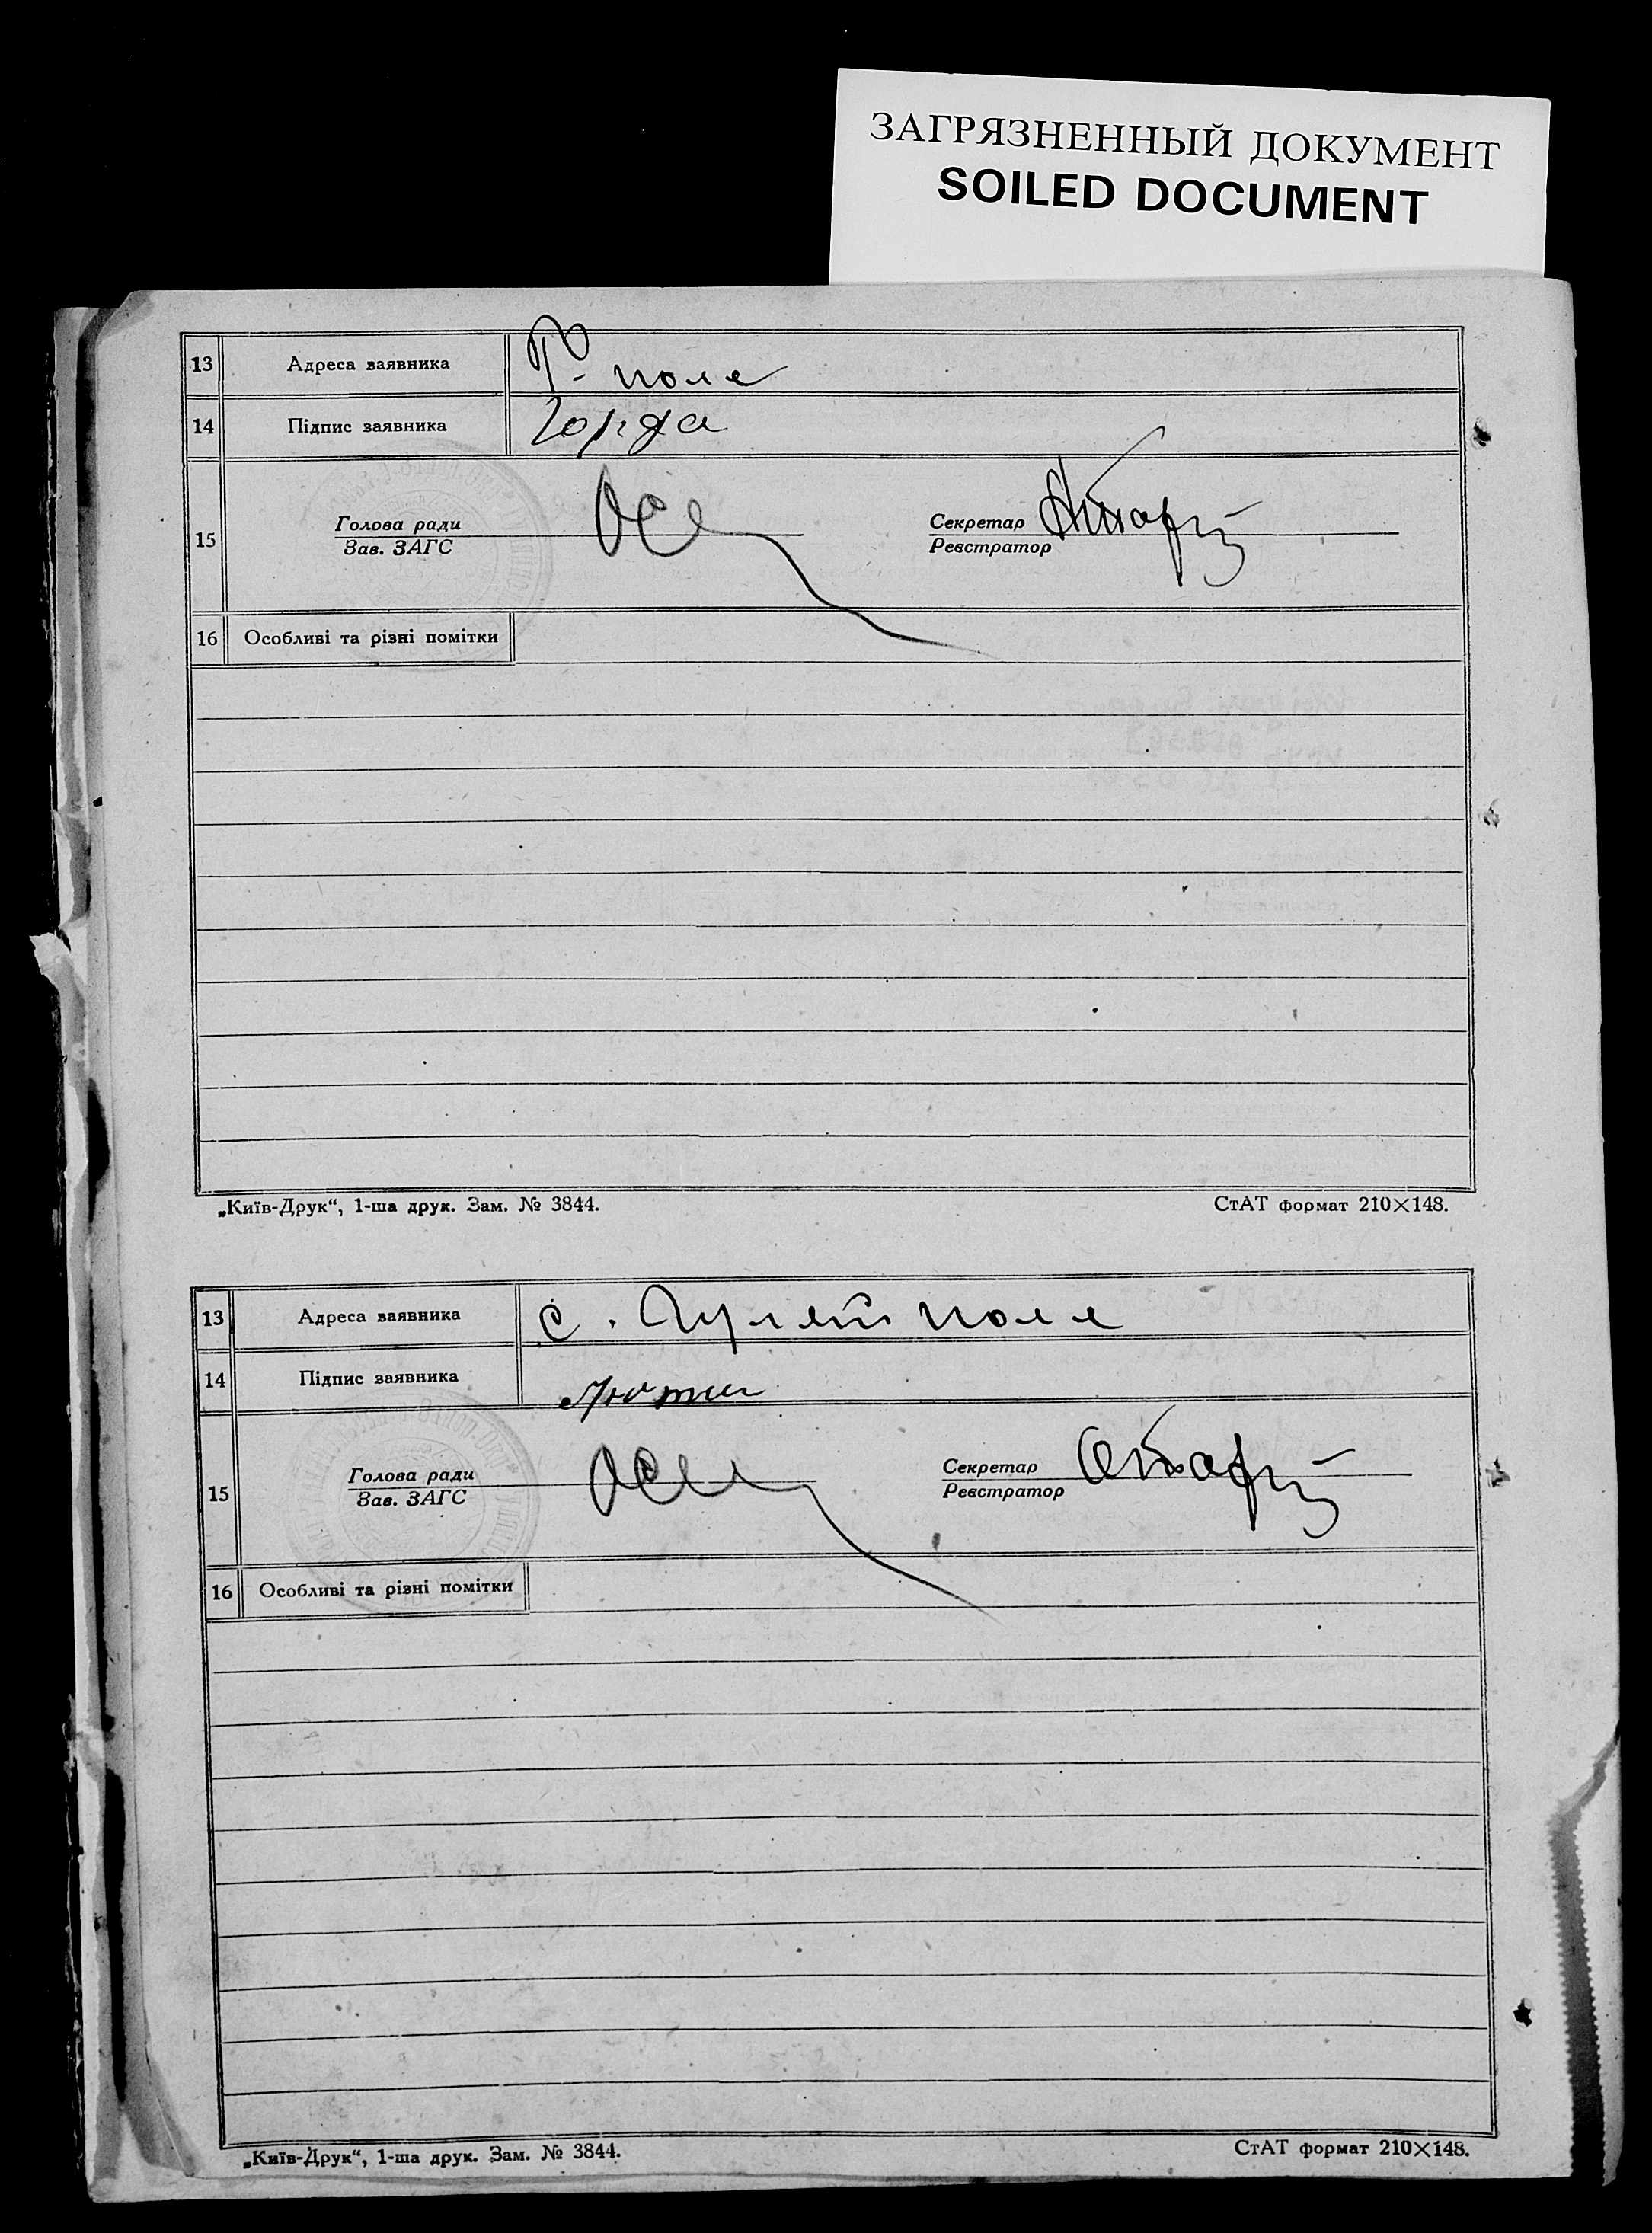 ЗАГРЯЗНЕННЫЙ ДОКУМЕНТ
SOILED DOCUMENT
13 Адреса заявника Г- поле
14 Підпис заявника Горда
15 Голова ради Секретар
Зав. ЗАГС Реєстратор
16 Особливі та різні помітки
„Київ-Друк“, 1-ша друк. Зам. № 3844. СтАТ формат 210×148.
13 Адреса заявника с. Гуляй поле
14 Підпис заявника
15 Голова ради Секретар
Зав. ЗАГС Реєстратор
16 Особливі та різні помітки
„Київ-Друк“, 1-ша друк. Зам. № 3844. СтАТ формат 210×148.